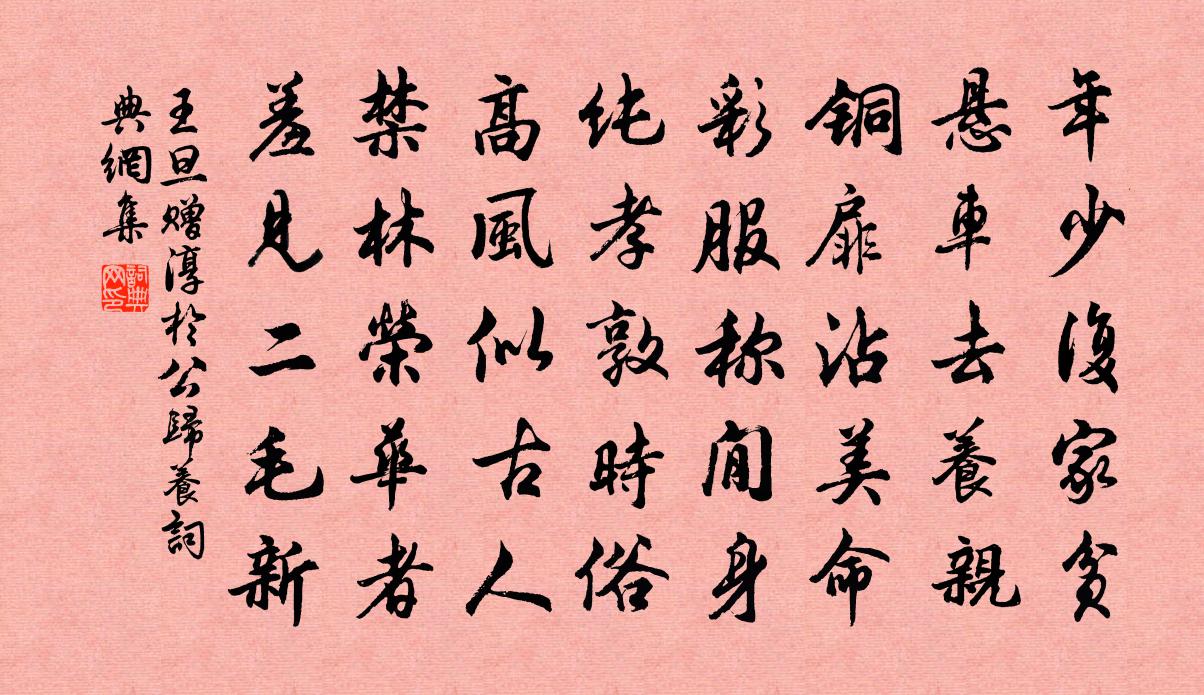 年少復家貧
悬車去養親
铜扉沾美命
彩服称閒身
纯孝敦時俗
高風似古人
禁林榮華者
羞見二毛新
王旦赠淳於公歸養詞
典網集
詞典
网印